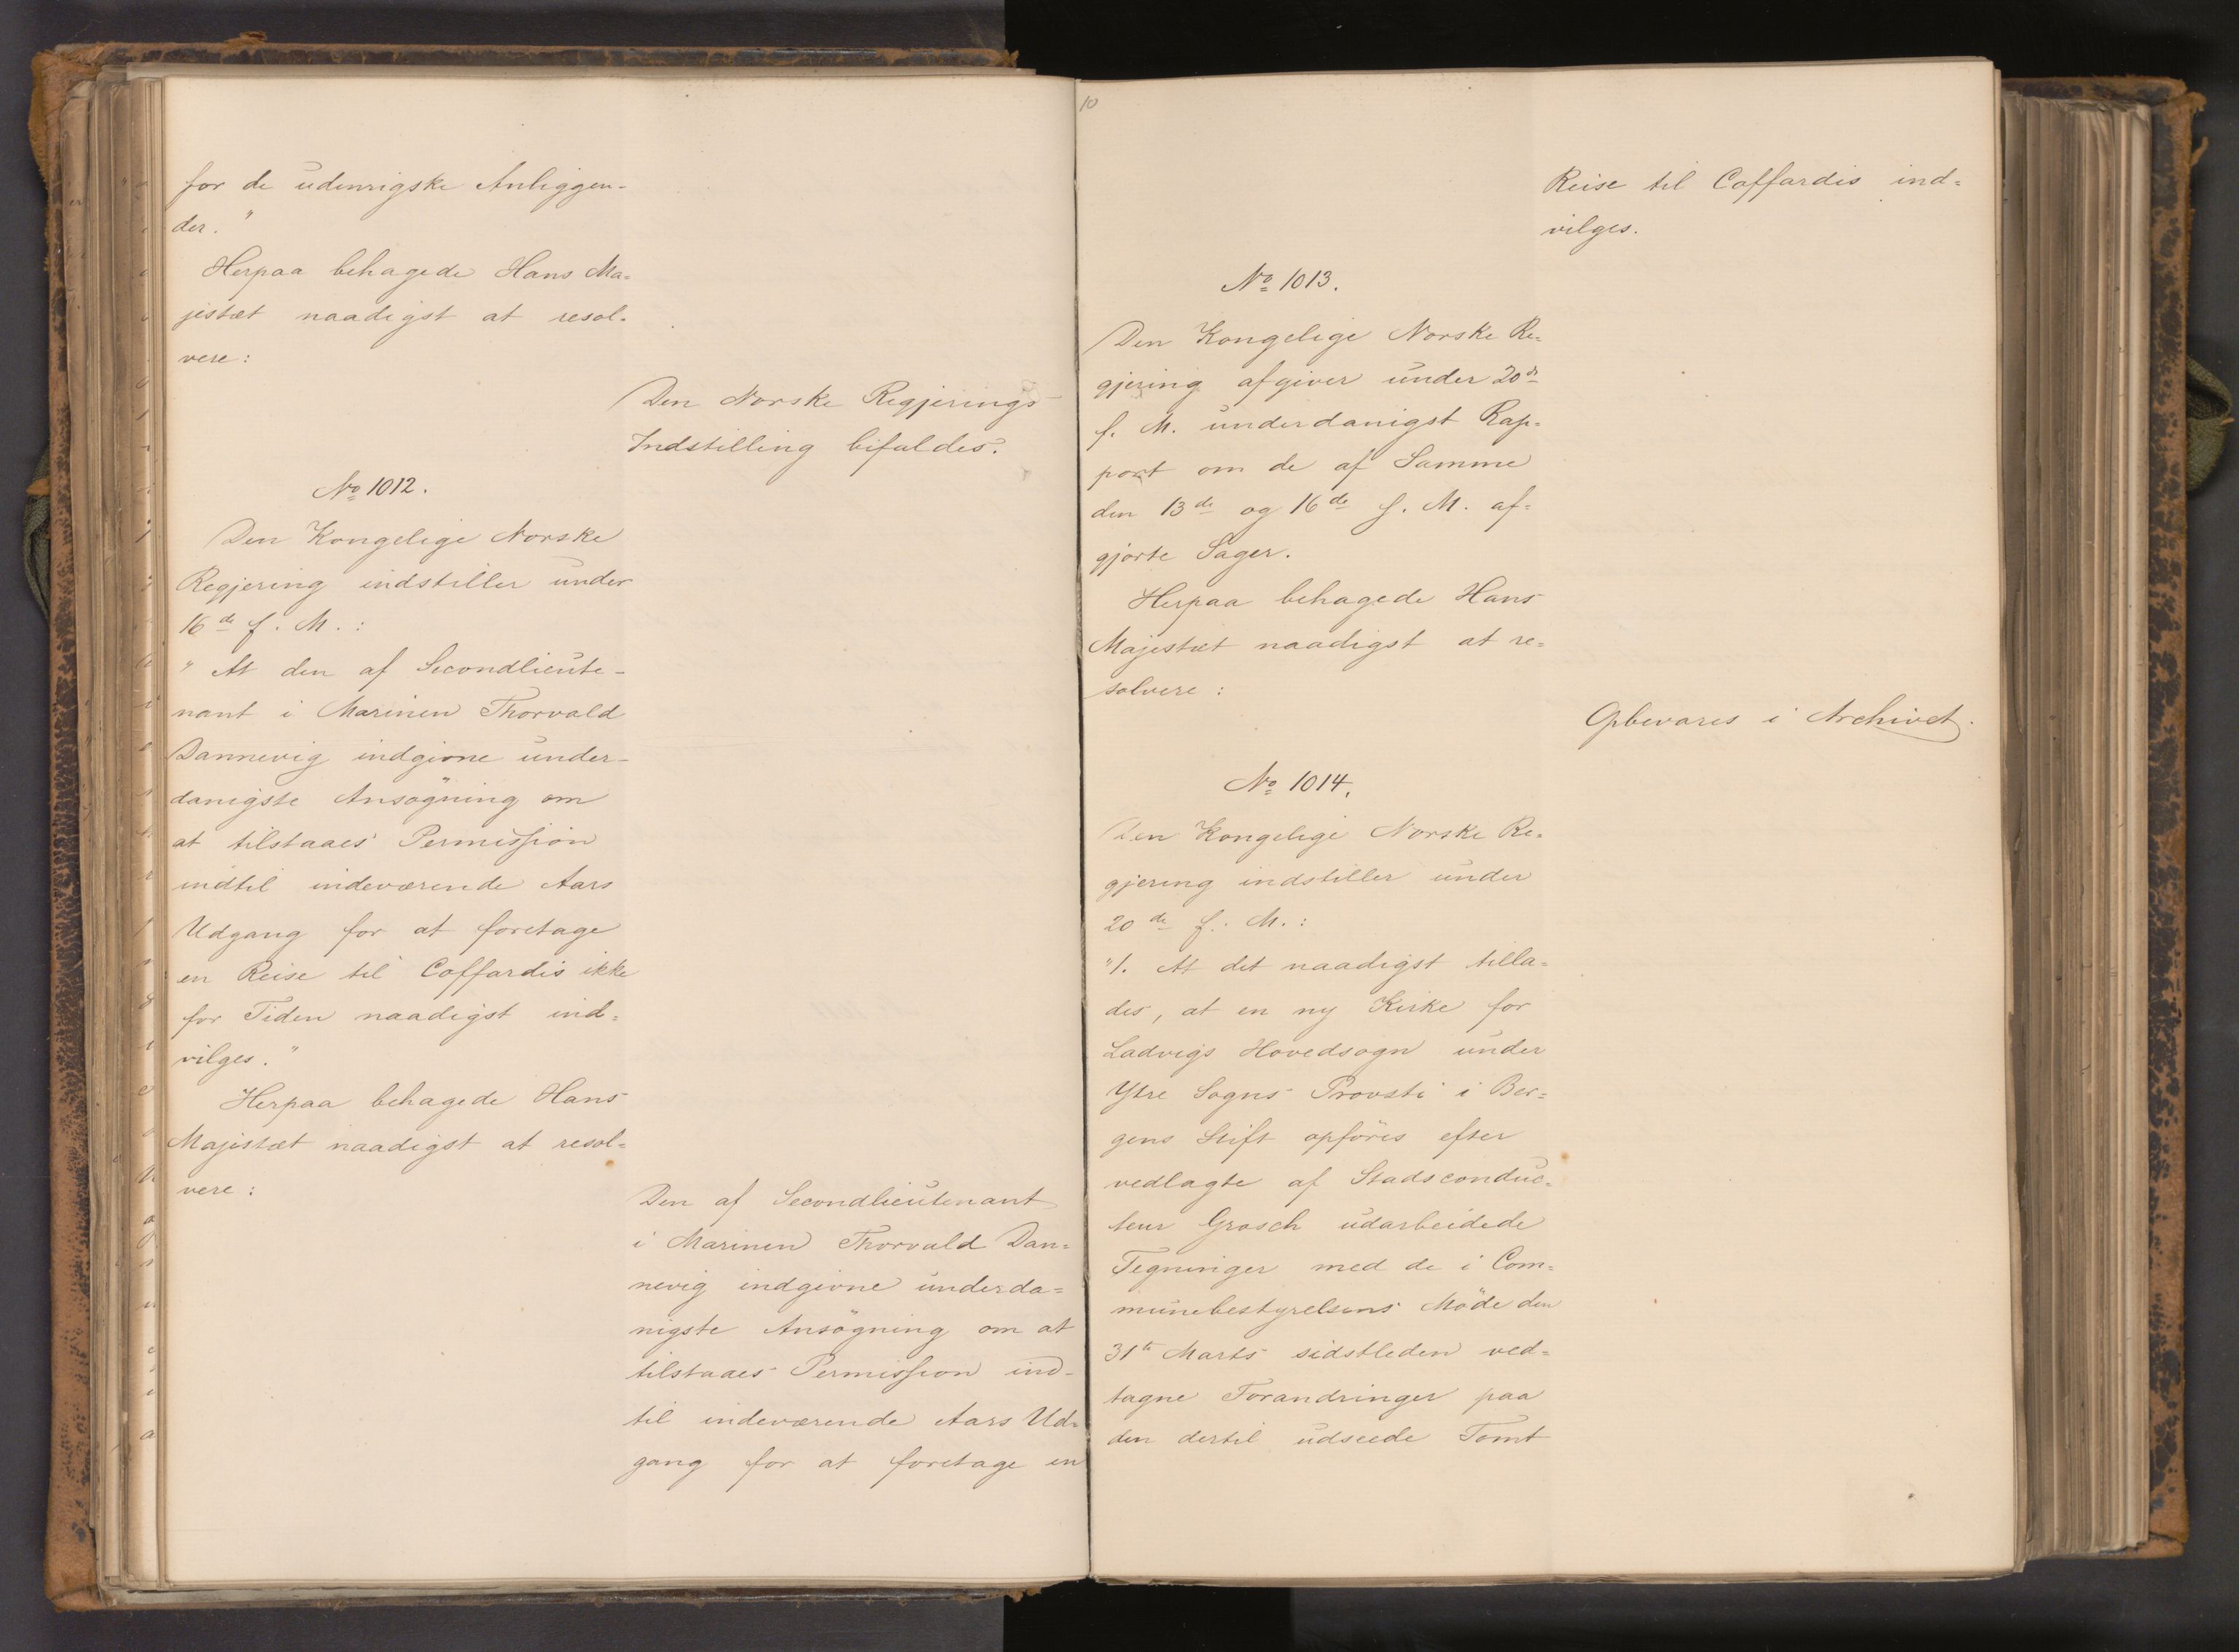 for de udenrigske Anliggen-
der."
Herpaa behagede Hans Ma=
jestæt naadigst at resol-
vere:
Den Norske Regjerings
Indstilling bifaldes.
No 1012.
Den Kongelige Norske
Regjering indstiller under
16de f. M.:
"At den af Secondlieute-
nant i Marinen Thorvald
Dannevig indgivne under-
danigste Ansögning om
at tilstaaes Permission
indtil indeværende Aars
Udgang for at foretage
en Reise til Coffardis ikke
for Tiden naadigst ind=
vilges."
Herpaa behagede Hans
Majestæt naadigst at resol=
vere:
Den af Secondlieutenant
i Marinen Thorvald Dan=
nevig indgivne underda=
nigste Ansögning om at
tilstaaes Permission ind-
til indeværende Aars Ud=
gang for at foretage en
10
Reise til Coffardis ind=
vilges.
No 1013.
Den Kongelige Norske Re=
gjering afgiver under 20de
f. M. underdanigst Rap=
port om de af Samme
den 13de og 16de f. M. af=
gjorte Sager.
Herpaa behagede Hans
Majestæt naadigst at re=
solvere:
Opbevares i Archivet.
No 1014.
Den Kongelige Norske Re=
gjering indstiller under
20de f. M.:
"1. At det naadigst tilla=
des, at en ny Kirke for
Ladvigs Hovedsogn under
Ytre Sogns Provsti i Ber=
gens Stift opföres efter
vedlagte af Stadsconduc=
teur Grosch udarbeidede
Tegninger med de i Com=
munebestyrelsens Möde den
31te Marts sidstleden ved=
tagne Forandringer paa
den dertil udseede Tomt